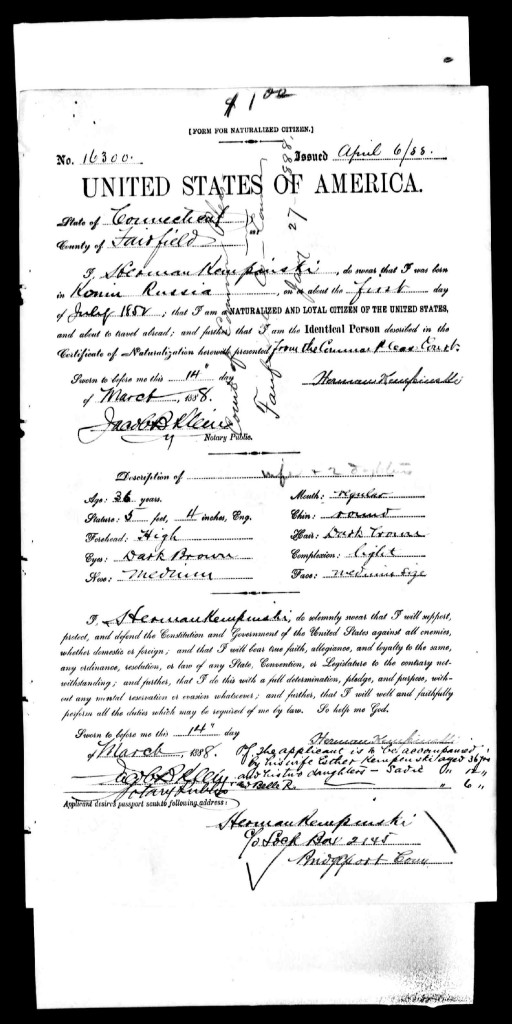 $1.00
[FORM FOR NATURALIZED CITIZEN.]
No. 16300. Issued April 6/88.
UNITED STATES OF AMERICA.
State of Connecticut
County of Fairfield } ss:
I, Herman Kempinski, do swear that I was born
in Konin Russia, on or about the first day
of July 1852; that I am a NATURALIZED AND LOYAL CITIZEN OF THE UNITED STATES,
and about to travel abroad; and further, that I am the Identical Person described in the
Certificate of Naturalization herewith presented from the Common Pleas Court
Court of Common Pleas
Fairfield County
27 1888.
Sworn to before me this 14" day Herman Kempinski
of March, 1888.
Jacob B Klein
Notary Public.
Description of wife + 2
Age: 36 years. Mouth: regular
Stature: 5 feet, 4 inches, Eng. Chin: round
Forehead: High Hair: Dark brown
Eyes: Dark Brown Complexion: light
Nose: Medium Face: medium size
I, Herman Kempinski, do solemnly swear that I will support,
protect, and defend the Constitution and Government of the United States against all enemies,
whether domestic or foreign; and that I will bear true faith, allegiance, and loyalty to the same,
any ordinance, resolution, or law of any State, Convention, or Legislature to the contrary not-
withstanding; and further, that I do this with a full determination, pledge, and purpose, with-
out any mental reservation or evasion whatsoever; and further, that I will well and faithfully
perform all the duties which may be required of me by law. So help me God.
Sworn to before me this 14" day Herman Kempinski
of March, 1888. The applicant is to be accompanied
by his wife Esther Kempinski aged 36 yrs
Jacob B Klein and his two daughters – Sadie " 12 "
Notary Public & Belle R. " 6 "
Applicant desires passport sent to following address:
Herman Kempinski
c/o Lock Box 2145
Bridgeport Conn